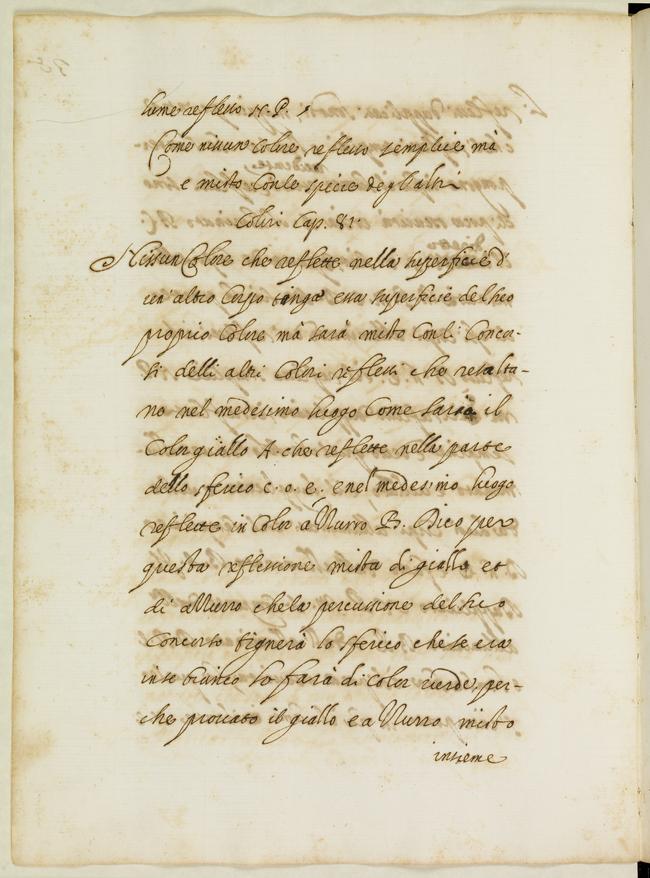 lume reflesso N. P.
Come nissun Colore reflesso semplice mà
è misto Con le specie degl'altri
Colori Cap. 81.
Nissun Colore che reflette nella superficie d'
un'altro Corpo tinga essa superficie del suo
proprio Colore mà sarà misto Con li Concor-
si delli altri Colori reflessi che resalta-
no nel medesimo luogo Come sarà il
Color giallo A. che reflette nella parte
dello sferico c. o. e. e nel medesimo luogo
reflette in Color aZzurro B. Dico per
questa reflessione mista di giallo et
di aZzurro che la percussione del suo
Concorso tignerà lo sferico che se era
in se bianco lo farà di Color verde, per-
che provato il giallo e aZzurro misto
insieme